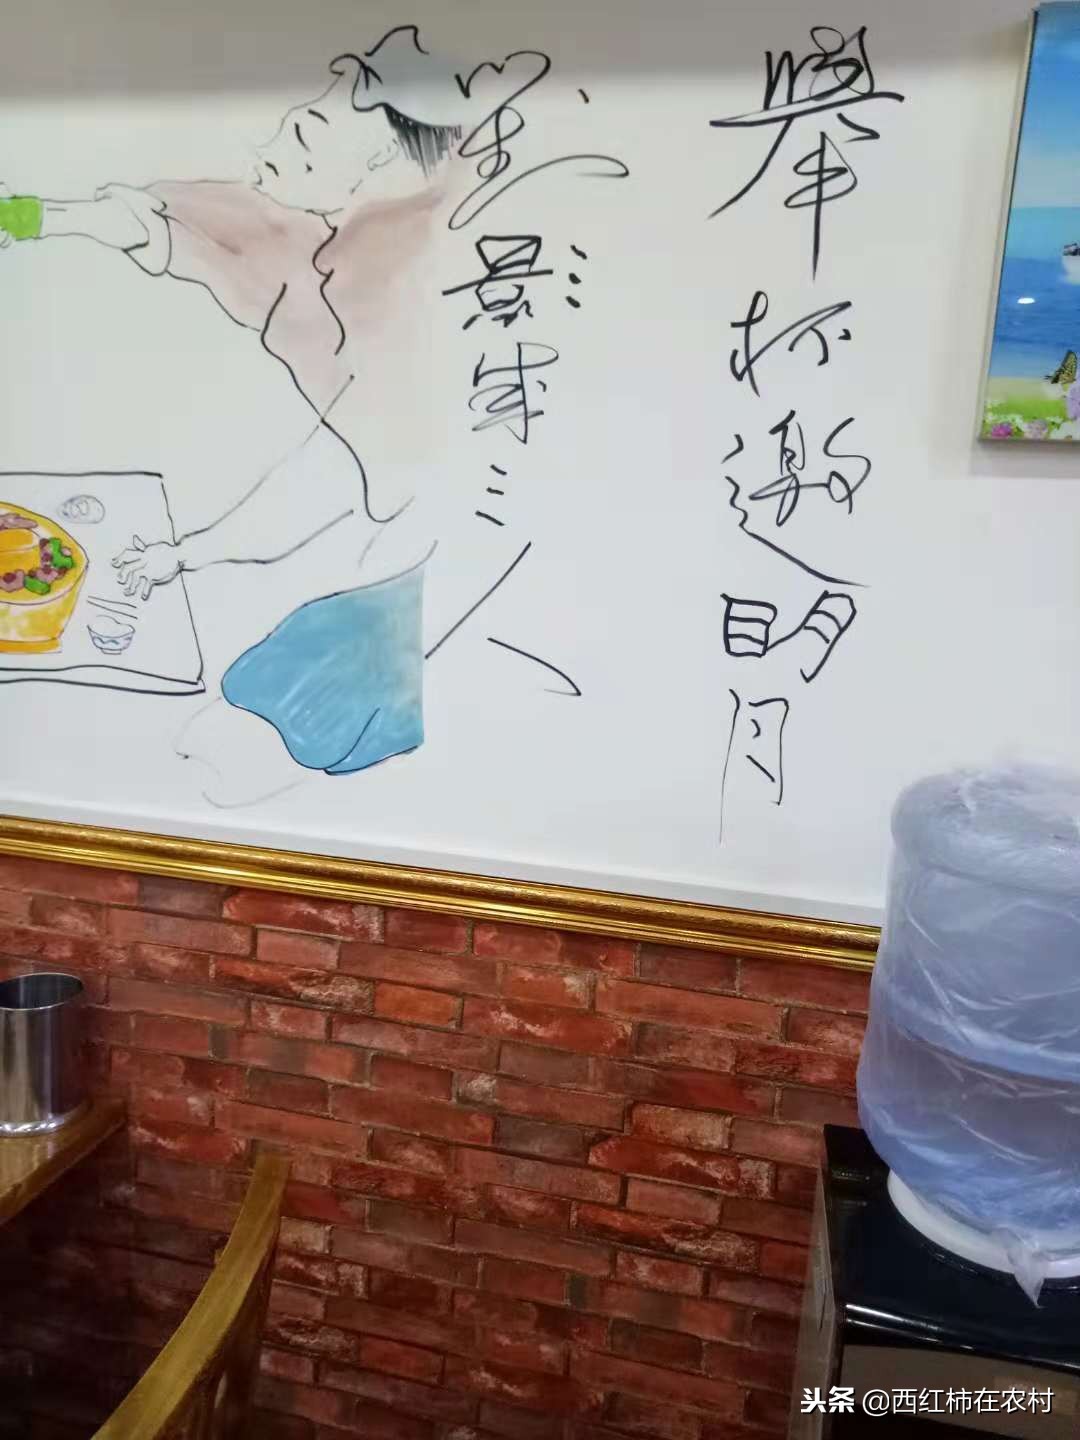 舉杯邀明月
對影成三人
头条 @西红柿在农村